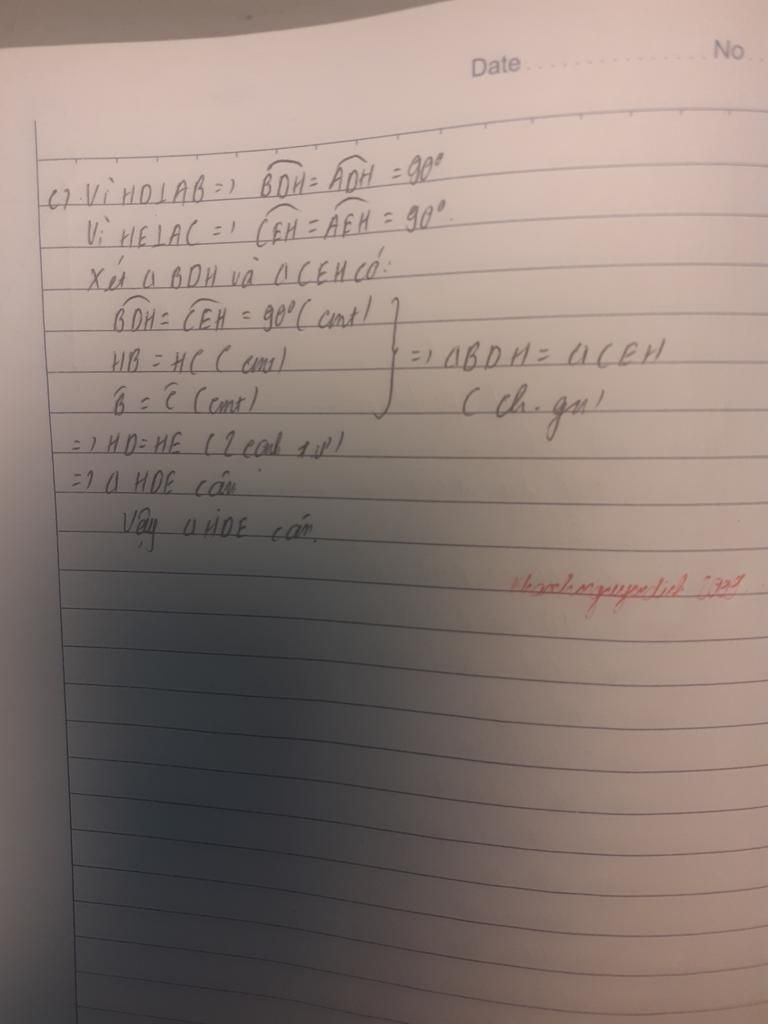 Date No
c) Vì HD⊥AB => BDH = ADH = 90°
Vì HE⊥AC => CEH = AEH = 90°.
Xét Δ BDH và Δ CEH có:
BDH = CEH = 90° (cmt)
HB = HC (cmt)
=> ΔBDH = ΔCEH
B̂ = Ĉ (cmt)
(ch.gn)
=> HD = HE (2 cạnh t.ư)
=> Δ HDE cân
Vậy Δ HDE cân.